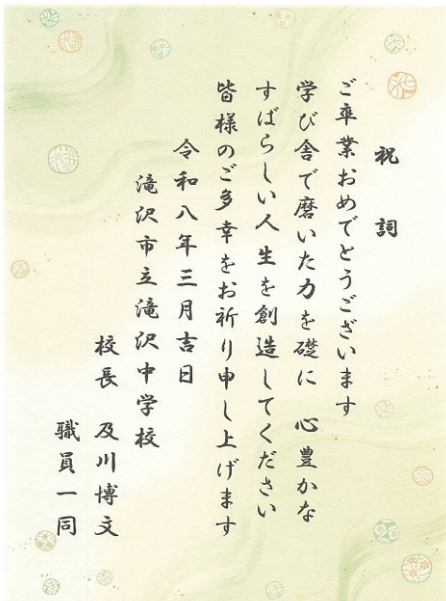 祝詞
ご卒業おめでとうございます
学び舎で磨いた力を礎に 心豊かな
すばらしい人生を創造してください
皆様のご多幸をお祈り申し上げます
令和八年三月吉日
滝沢市立滝沢中学校
校長 及川博文
職員一同